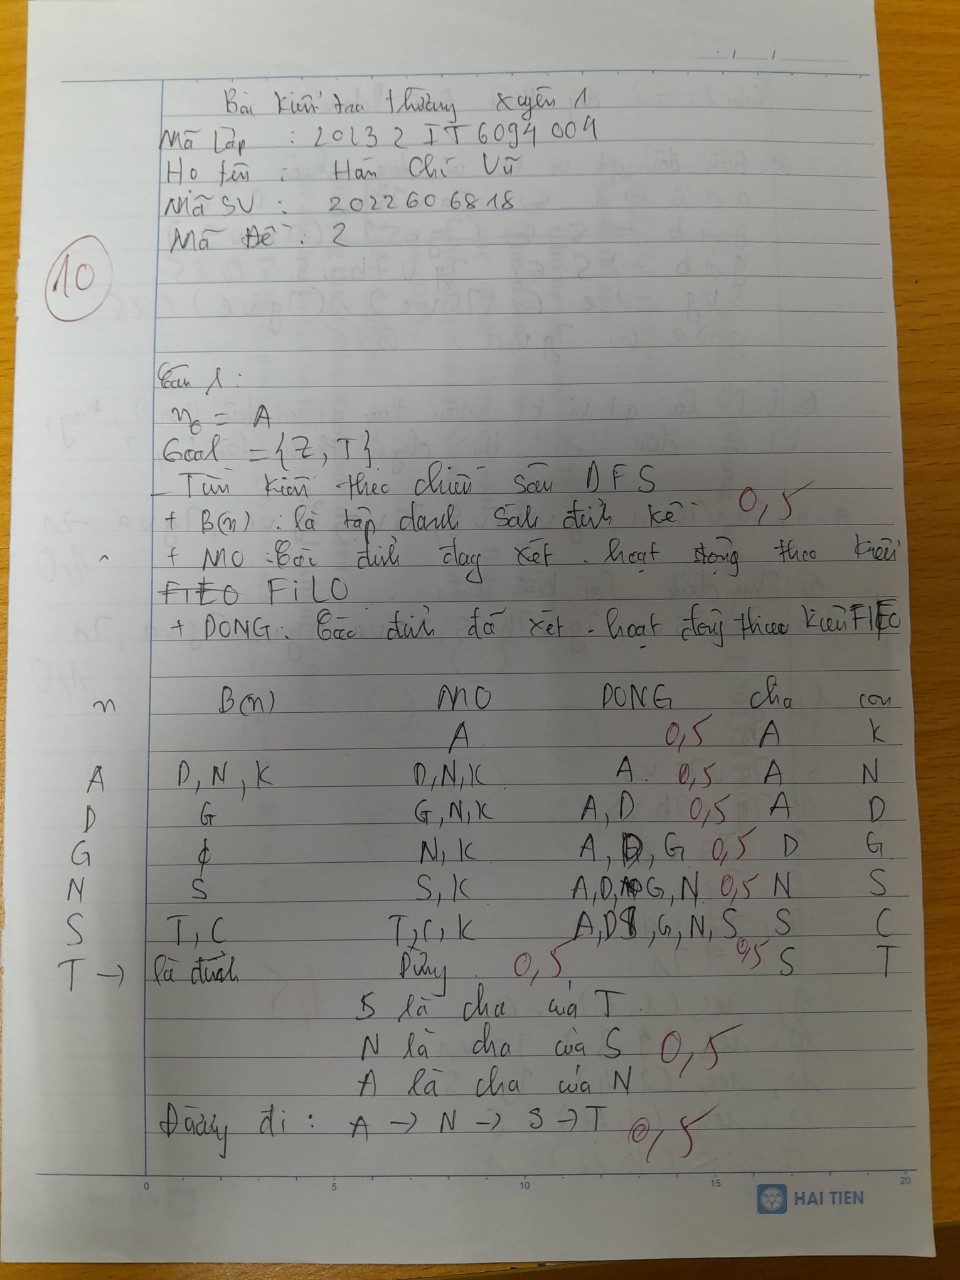 Bài kiểm tra thường xuyên 1
Mã lớp : 20232IT6094004
Họ tên : Hán Chí Vũ
Mã SV : 2022606818
Mã Đề : 2
10
Câu 1 :
n₀ = A
Goal = {Z, T}
- Tìm kiếm theo chiều sâu DFS
+ B(n) : là tập danh sách đỉnh kề 0,5
+ MO : Các đỉnh đang xét . hoạt động theo kiểu
FIFO FiLO
+ DONG : Các đỉnh đã xét - hoạt động theo kiểu FIFO
n B(n) MO DONG cha con
A 0,5 A K
A D, N, K D,N,K A 0,5 A N
D G G,N,K A, D 0,5 A D
G ϕ N, K A, D, G 0,5 D G
N S S, K A,D,G, N 0,5 N S
S T, C T, C, K A,D,G, N, S S C
T → là đích Dừng 0,5 0,5 S T
S là cha của T
N là cha của S 0,5
A là cha của N
Đường đi : A → N → S → T 0,5
0 5 10 15 20
HAI TIEN